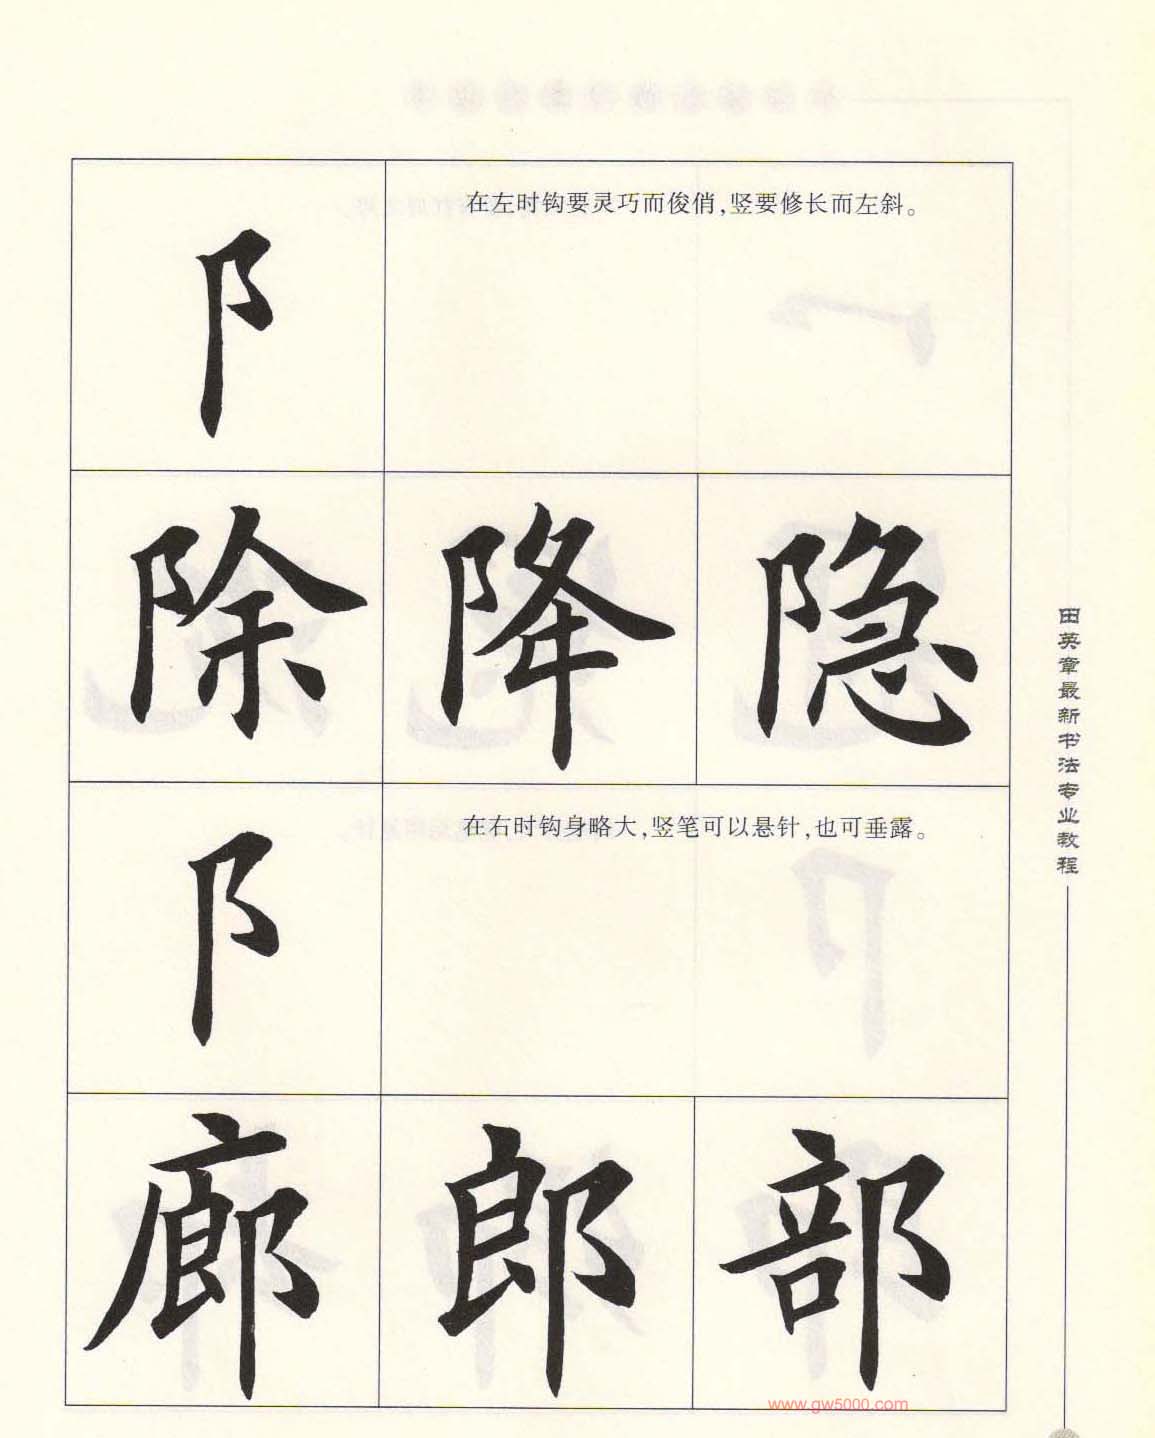 阝
在左时钩要灵巧而俊俏,竖要修长而左斜。
除 降 隐
阝
在右时钩身略大,竖笔可以悬针,也可垂露。
廊 郎 部
田英章最新书法专业教程
www.gw5000.com